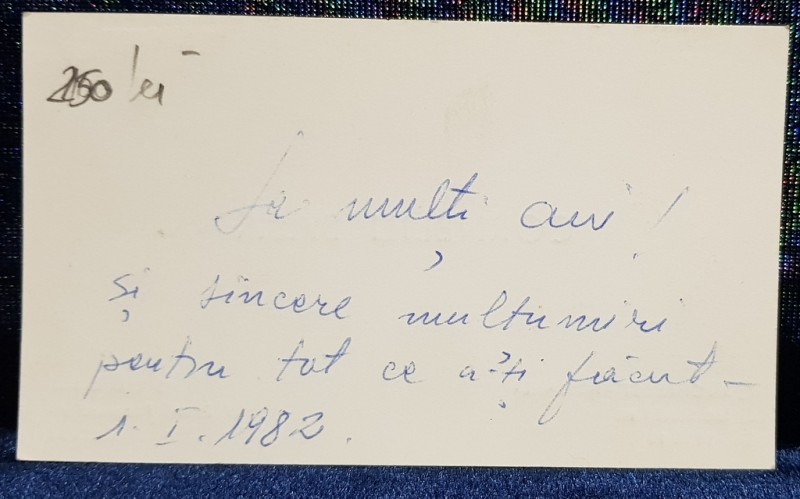 lei
La mulți ani!
și sincere mulțumiri
pentru tot ce ați făcut –
1. I. 1982.